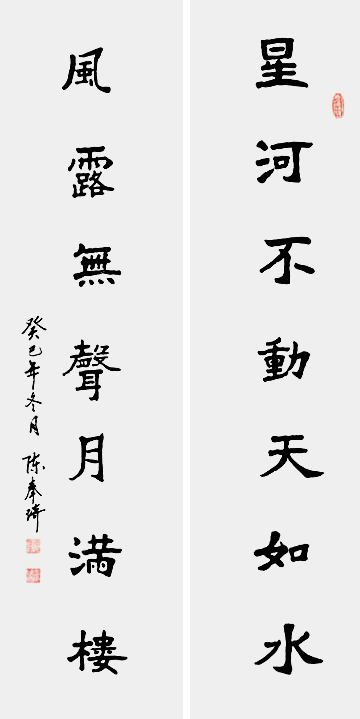 星河不動天如水
風露無聲月滿樓
癸巳年冬月 陈奉琦